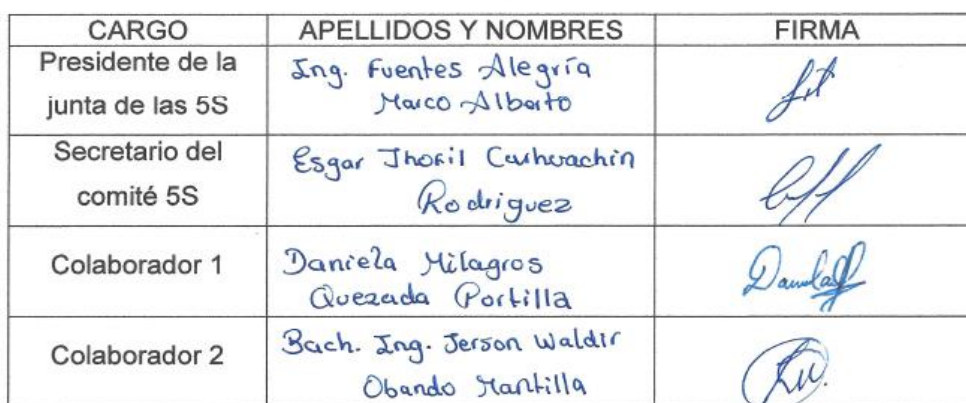 CARGO APELLIDOS Y NOMBRES FIRMA
Presidente de la
junta de las 5S
Ing. Fuentes Alegría
Marco Alberto
Secretario del
comité 5S
Esgar Jhoril Carhuachin
Rodriguez
Colaborador 1
Daniela Milagros
Quezada Portilla
Daniela
Colaborador 2
Bach. Ing. Jerson Waldir
Obando Mantilla